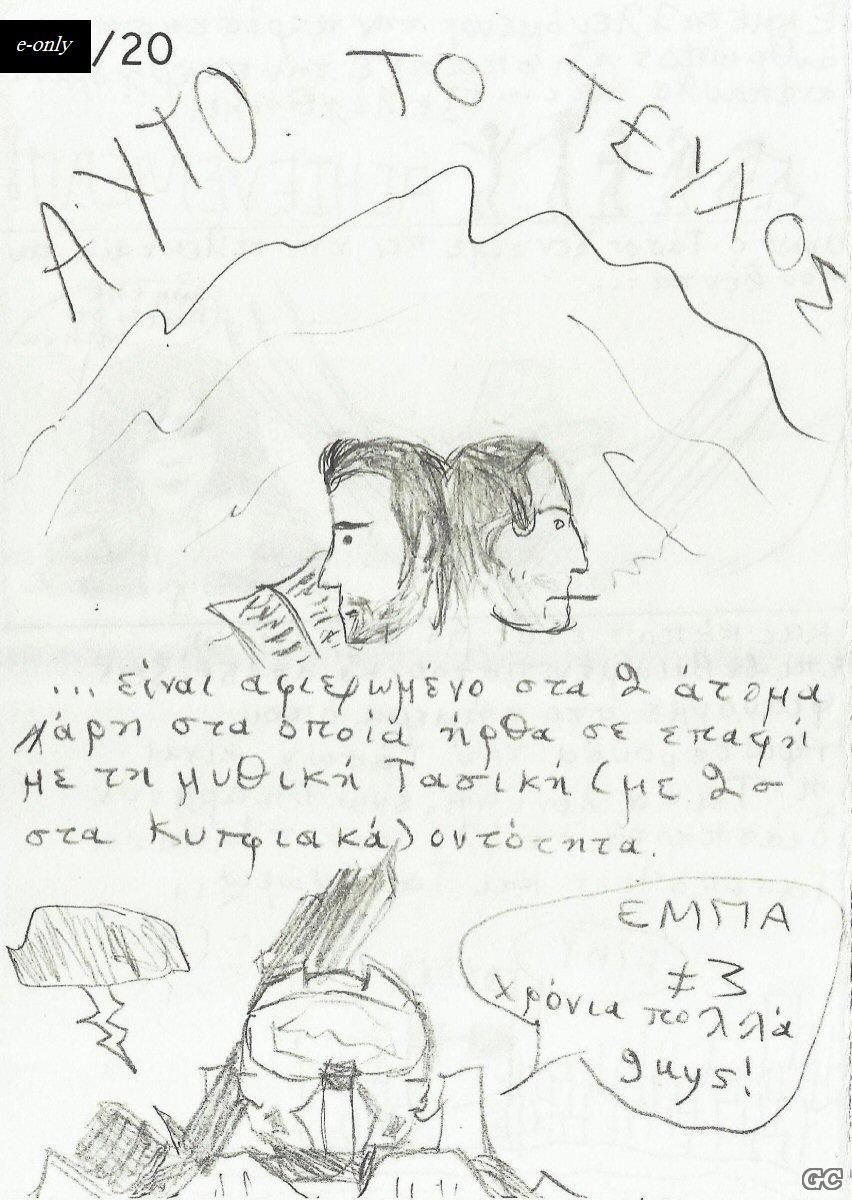 e-only /20
ΑΥΤΟ ΤΟ ΤΕΥΧΟΣ
... είναι αφιερωμένο στα 2 άτομα
χάρη στα οποία ήρθα σε επαφή
με τη μυθική Τασική (με 2 σ
στα Κυπριακά) οντότητα.
ΕΜΠΑ
#3
χρόνια πολλά
guys!
GC